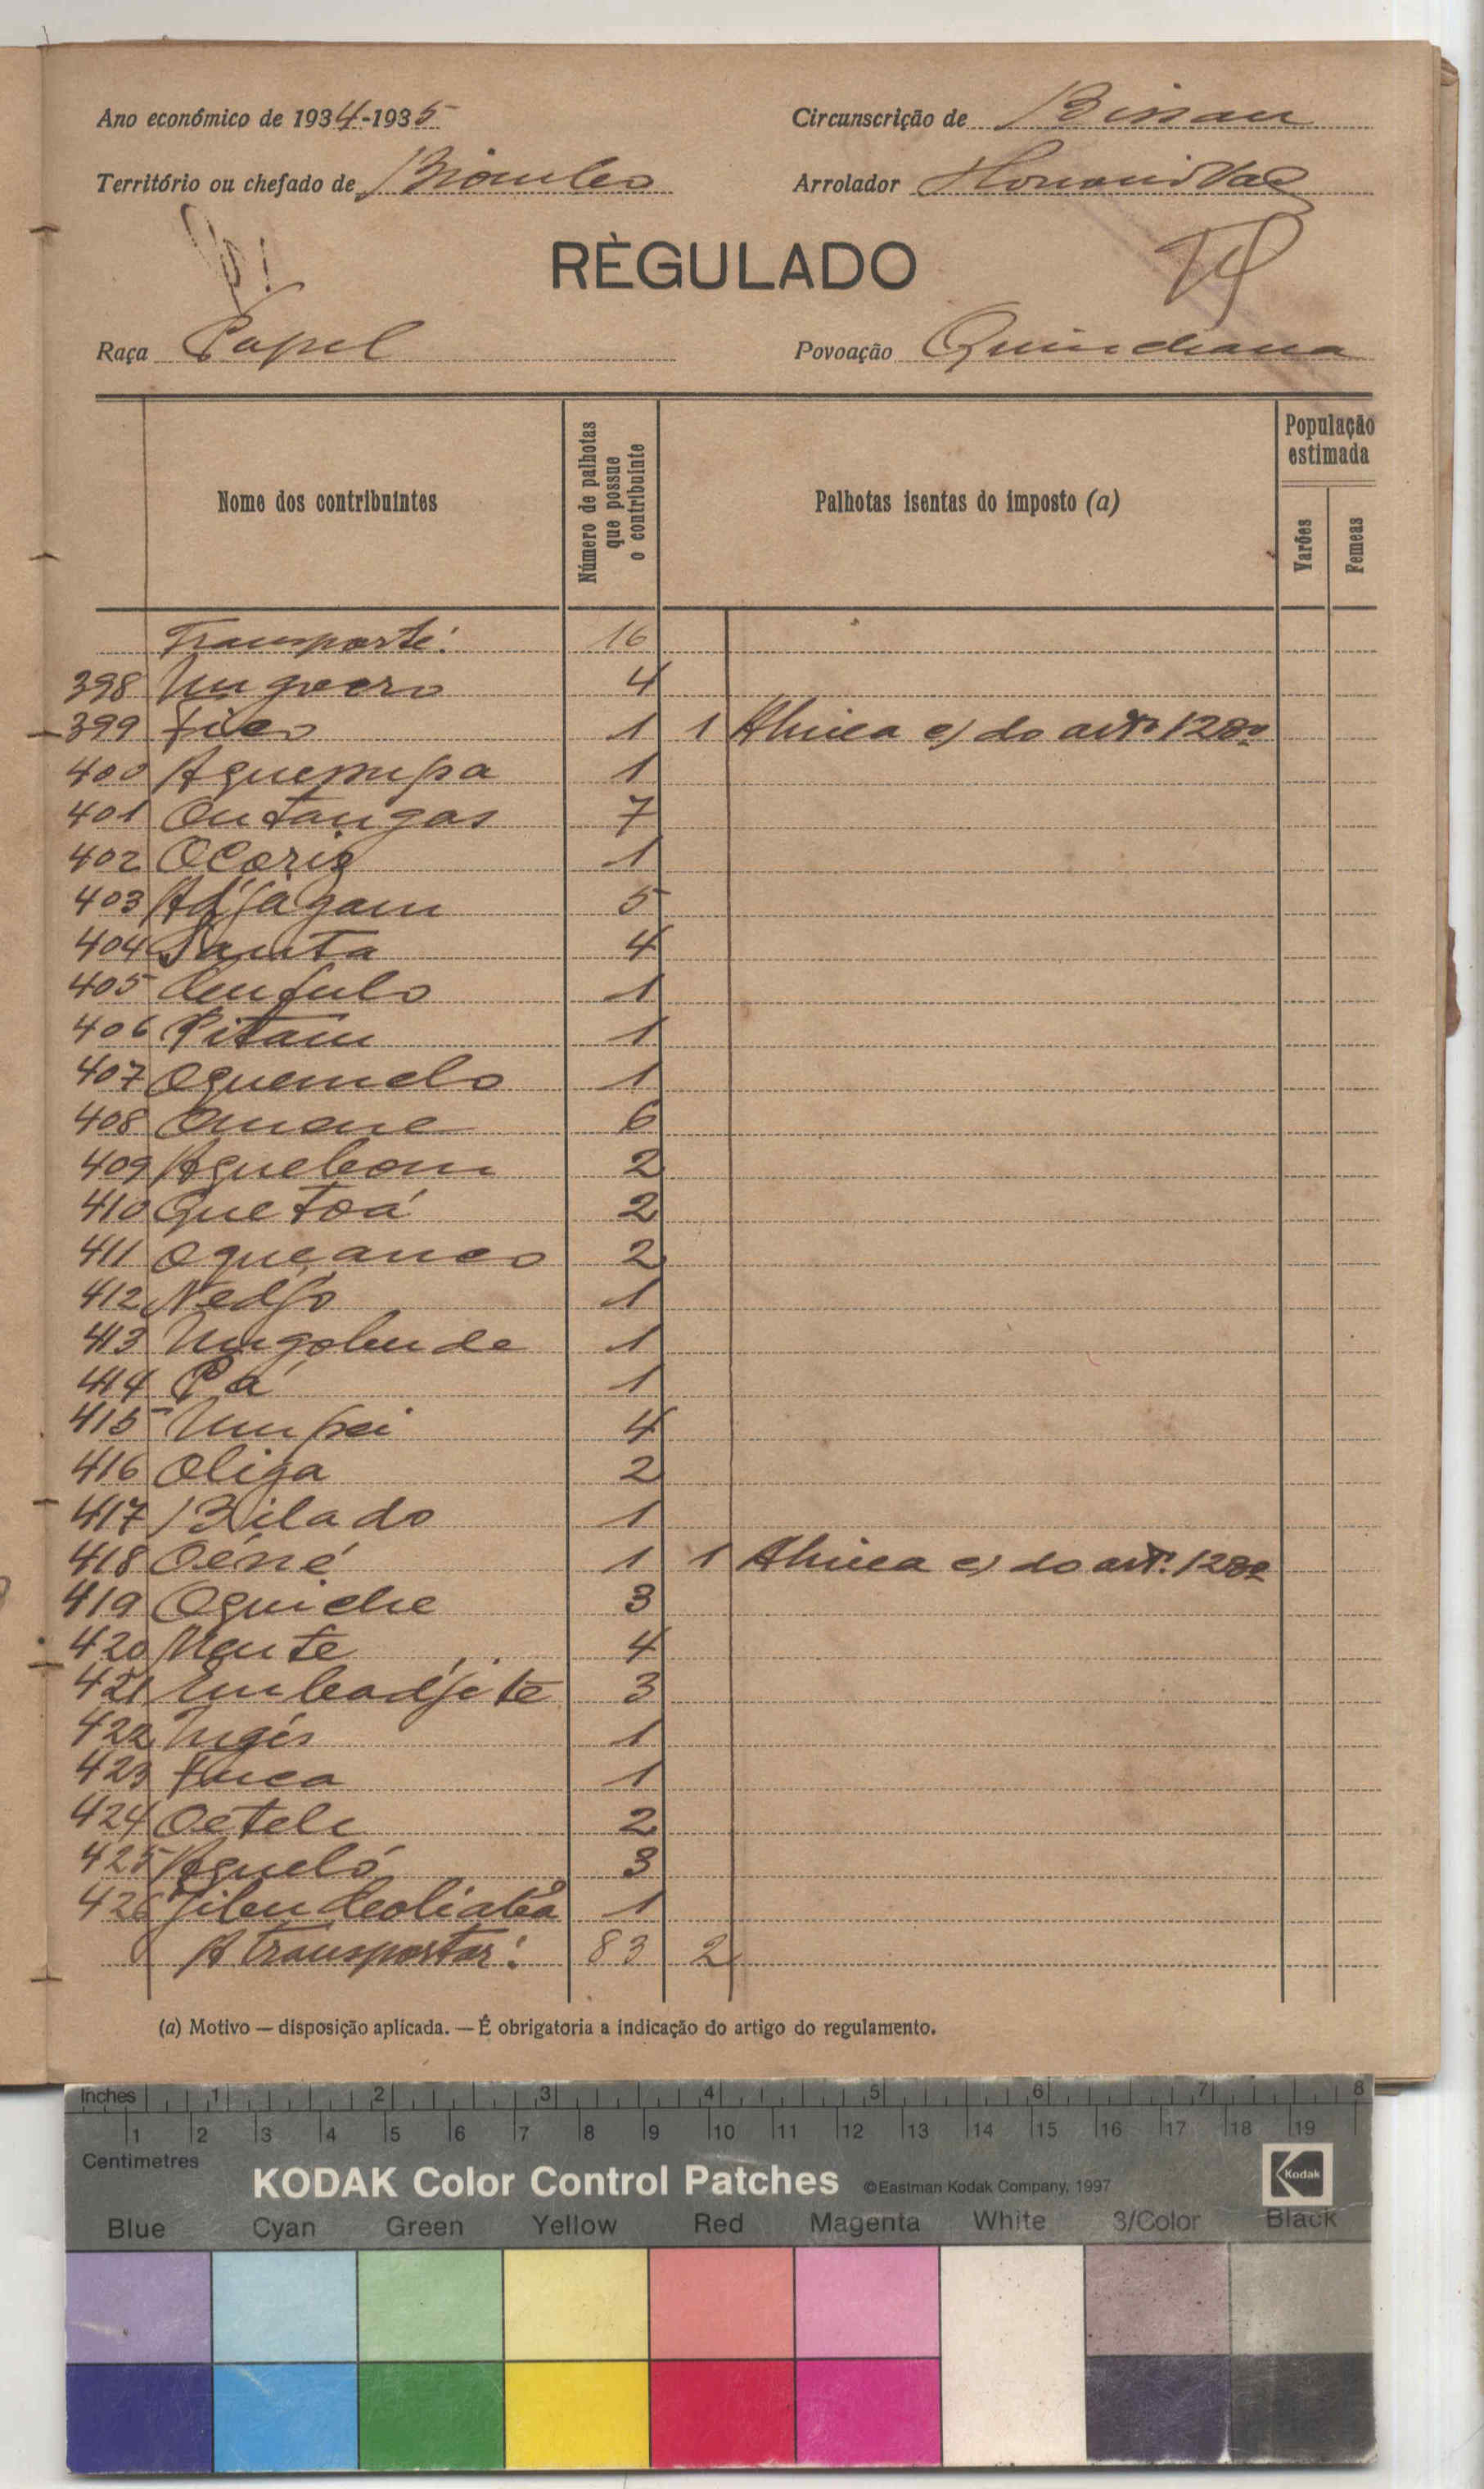 Ano económico de 1934-1935
Circunscrição de Bissau
Território ou chefado de Biombo
Arrolador
RÈGULADO
Raça Papel
Povoação Quindiana
Nome dos contribuintes
Número de palhotas que possue o contribuinte
Palhotas isentas do imposto (a)
População estimada
Varões
Femeas
Transporte: 16
398 4
399 1 1 c) do artº 128º
400 1
401 Ontangas 7
402 1
403 Adjagam 5
404 Santa 4
405 1
406 Pitam 1
407 Oquemelo 1
408 Omone 6
409 Aquebom 2
410 Quetoá 2
411 2
412 Nedjo 1
413 1
414 Pá 1
415 4
416 Oliga 2
417 Bilado 1
418 Oéné 1 1 c) do artº 128º
419 Oquiche 3
420 4
421 3
422 1
423 1
424 Oetele 2
425 Aqueló 3
426 1
A transportar: 83 2
(a) Motivo — disposição aplicada. — É obrigatoria a indicação do artigo do regulamento.
Inches 1 2 3 4 5 6 7 8
1 2 3 4 5 6 7 8 9 10 11 12 13 14 15 16 17 18 19
Centimetres
KODAK Color Control Patches ©Eastman Kodak Company, 1997 Kodak
Blue Cyan Green Yellow Red Magenta White 3/Color Black